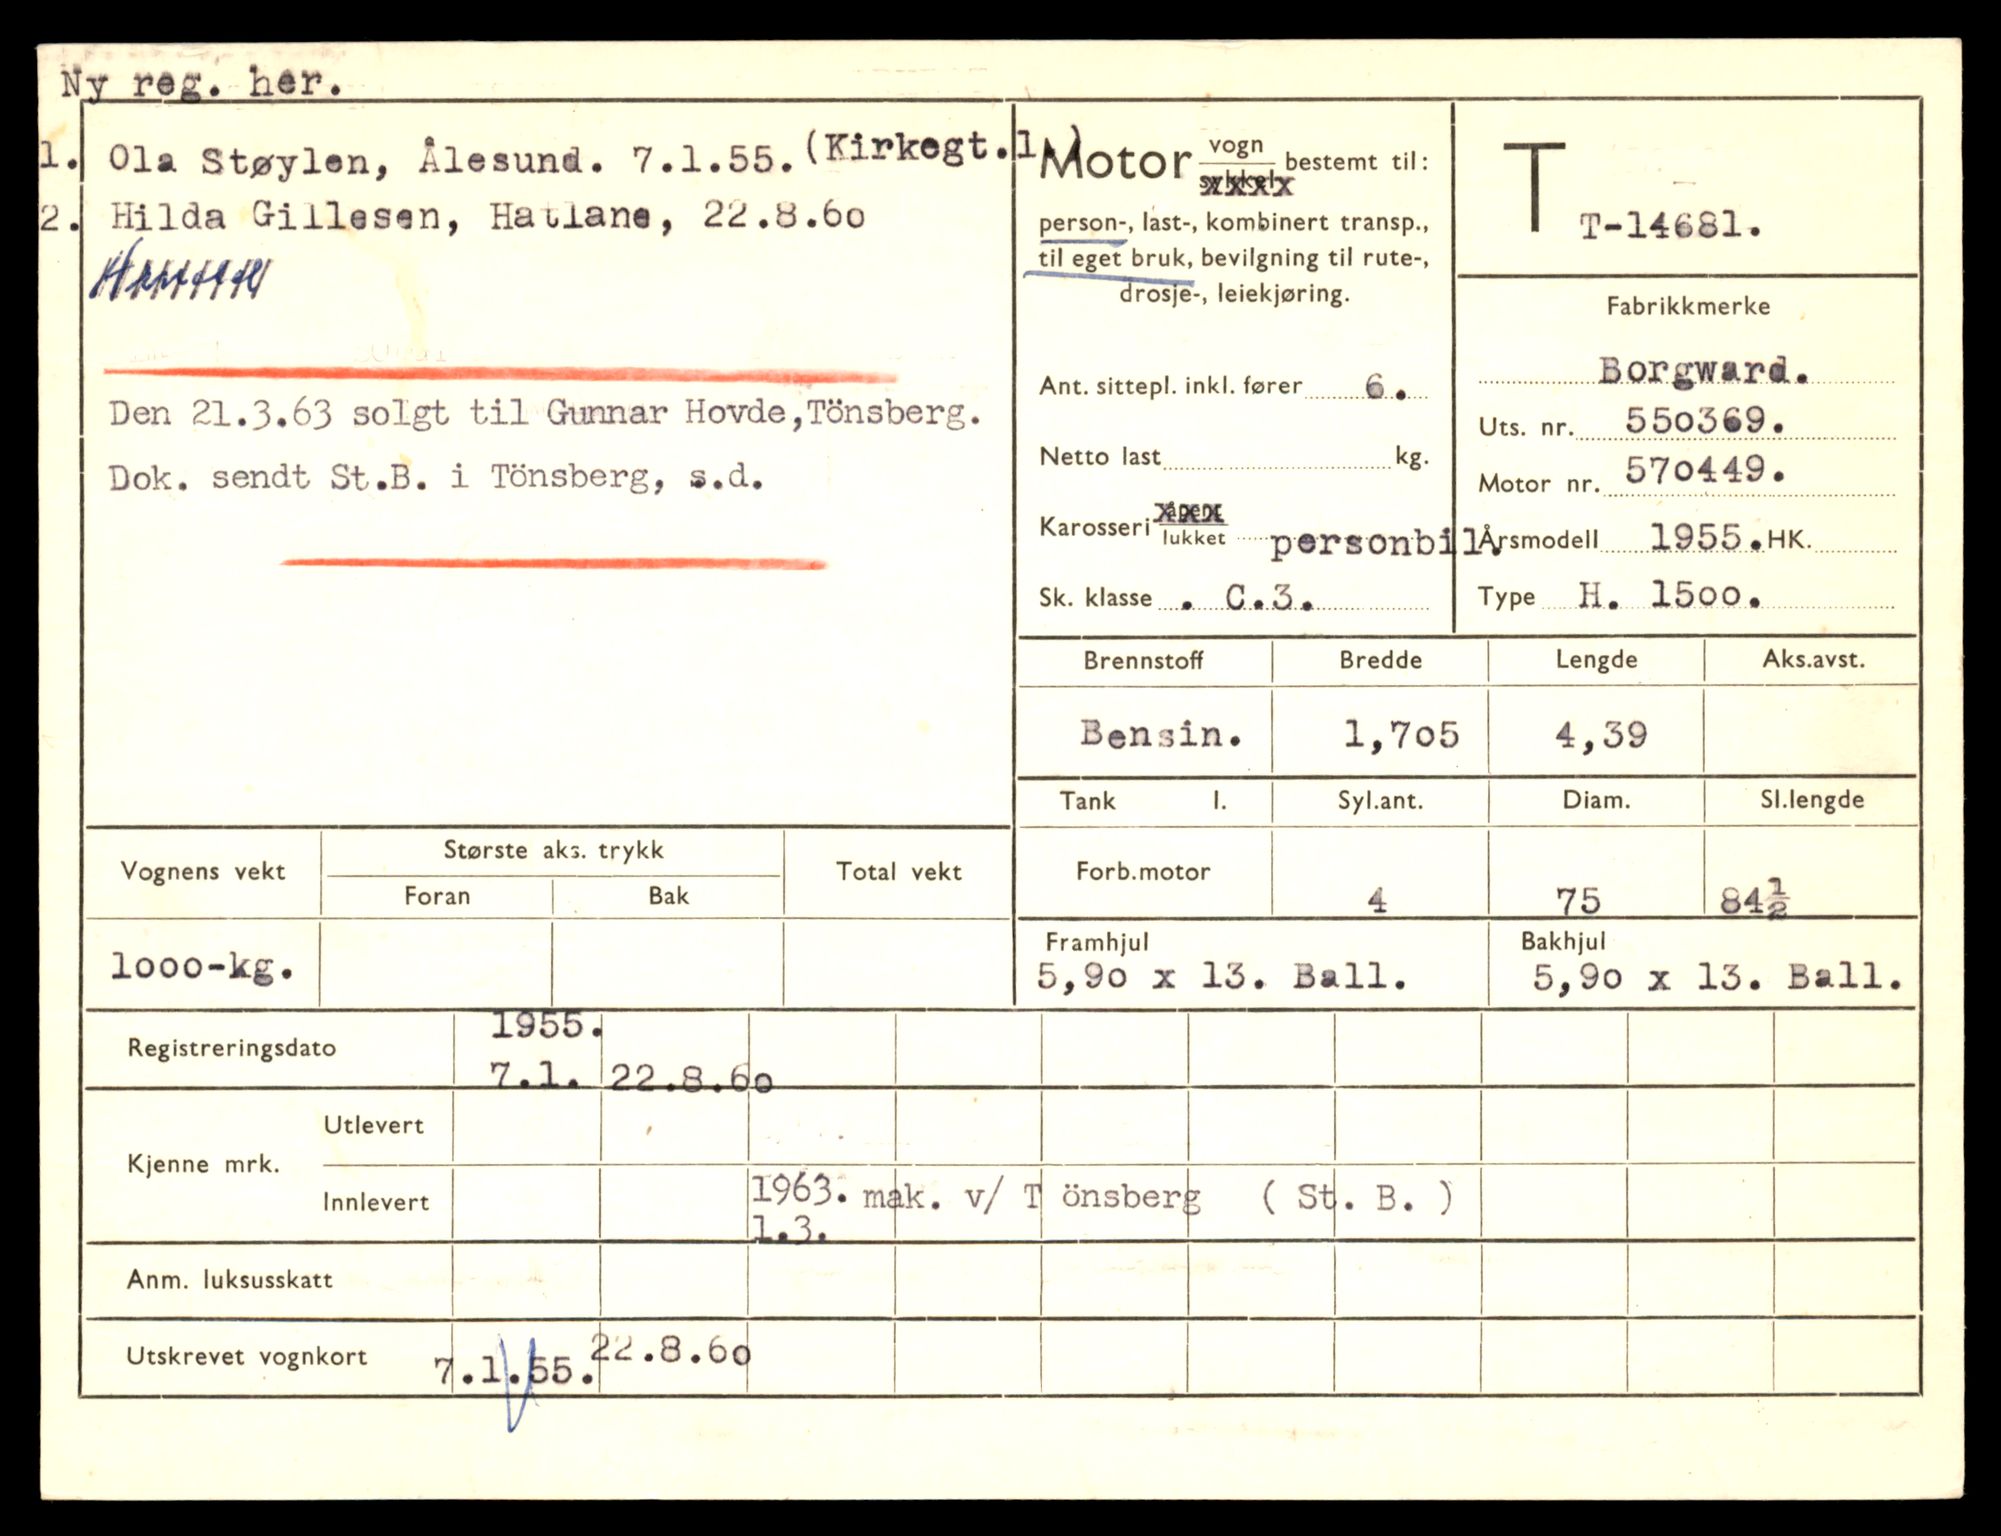 Ny reg. her.
1. Ola Støylen, Ålesund. 7.1.55. (Kirkegt.1.)
2. Hilda Gillesen, Hatlane, 22.8.60
Den 21.3.63 solgt til Gunnar Hovde, Tönsberg.
Dok. sendt St.B. i Tönsberg, s.d.
Motor vogn bestemt til:
sykkel
person-, last-, kombinert transp.,
til eget bruk, bevilgning til rute-,
drosje-, leiekjøring.
Ant. sittepl. inkl. fører 6.
Netto last kg.
Karosseri åpent
lukket personbil.
Sk. klasse . C.3.
T
T-14681.
Fabrikkmerke
Borgward.
Uts. nr. 550369.
Motor nr. 570449.
Årsmodell 1955. HK.
Type H. 1500.
Brennstoff Bredde Lengde Aks.avst.
Bensin. 1,705 4,39
Tank l. Syl.ant. Diam. Sl.lengde
Forb.motor 4 75 84½
Framhjul Bakhjul
5,90 x 13. Ball. 5,90 x 13. Ball.
Vognens vekt Største aks. trykk Total vekt
Foran Bak
1000-kg.
Registreringsdato 1955.
7.1. 22.8.60
Kjenne mrk. Utlevert
Innlevert 1963. mak. v/ T önsberg ( St. B. )
1.3.
Anm. luksusskatt
Utskrevet vognkort 7.1.55. 22.8.60